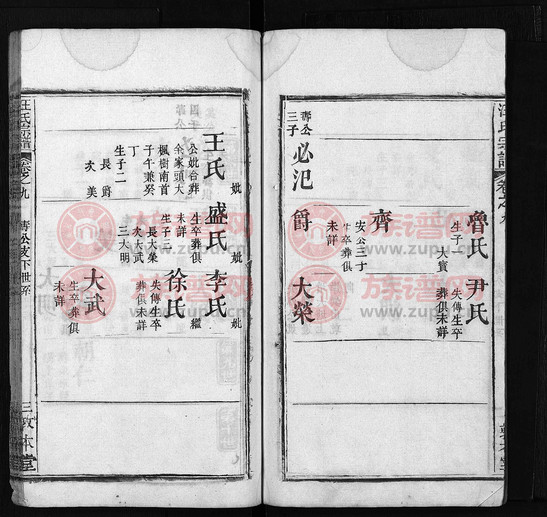 魯氏
生子
大賓
尹氏
失傳生卒
葬俱未詳
齊
安公三子
生卒葬俱
未詳
壽公
三子
必氾
爵
大榮
妣
王氏
公妣合葬
余家頭大
楓樹南首
子午兼癸
丁
生子二
長爵
次美
妣
盛氏
生卒葬俱
未詳
生子三
長大榮
次大武
三大明
妣
李氏
繼
徐氏
失傳生卒
葬俱未詳
大武
生卒葬俱
未詳
汪氏宗譜
卷之九
壽公支下世系
三敬本堂
族谱网
www.zupu.cn